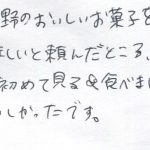 野のおいしいお菓子を
ほしいと頼んだところ、
初めて見る&食べまし
しかったです。